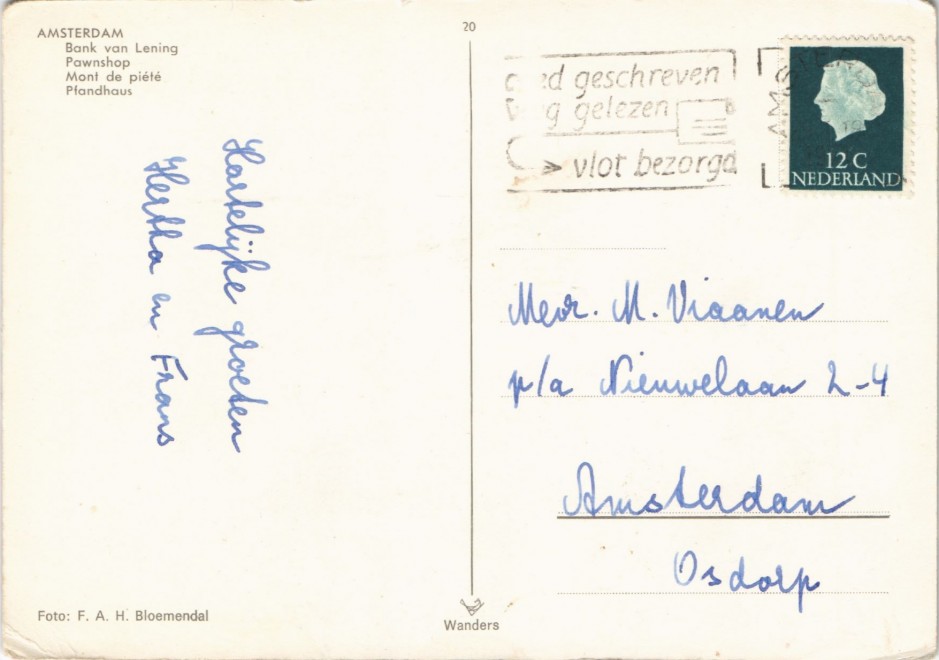 AMSTERDAM
Bank van Lening
Pawnshop
Mont de piété
Pfandhaus
Hartelijke groeten
Hertha en Frans
Foto: F. A. H. Bloemendal
20
Wanders
geschreven
gelezen
vlot bezorgd
AMSTERDAM
12 C
NEDERLAND
Mevr. M. Viaanen
p/a Nieuwelaan 2-4
Amsterdam
Osdorp